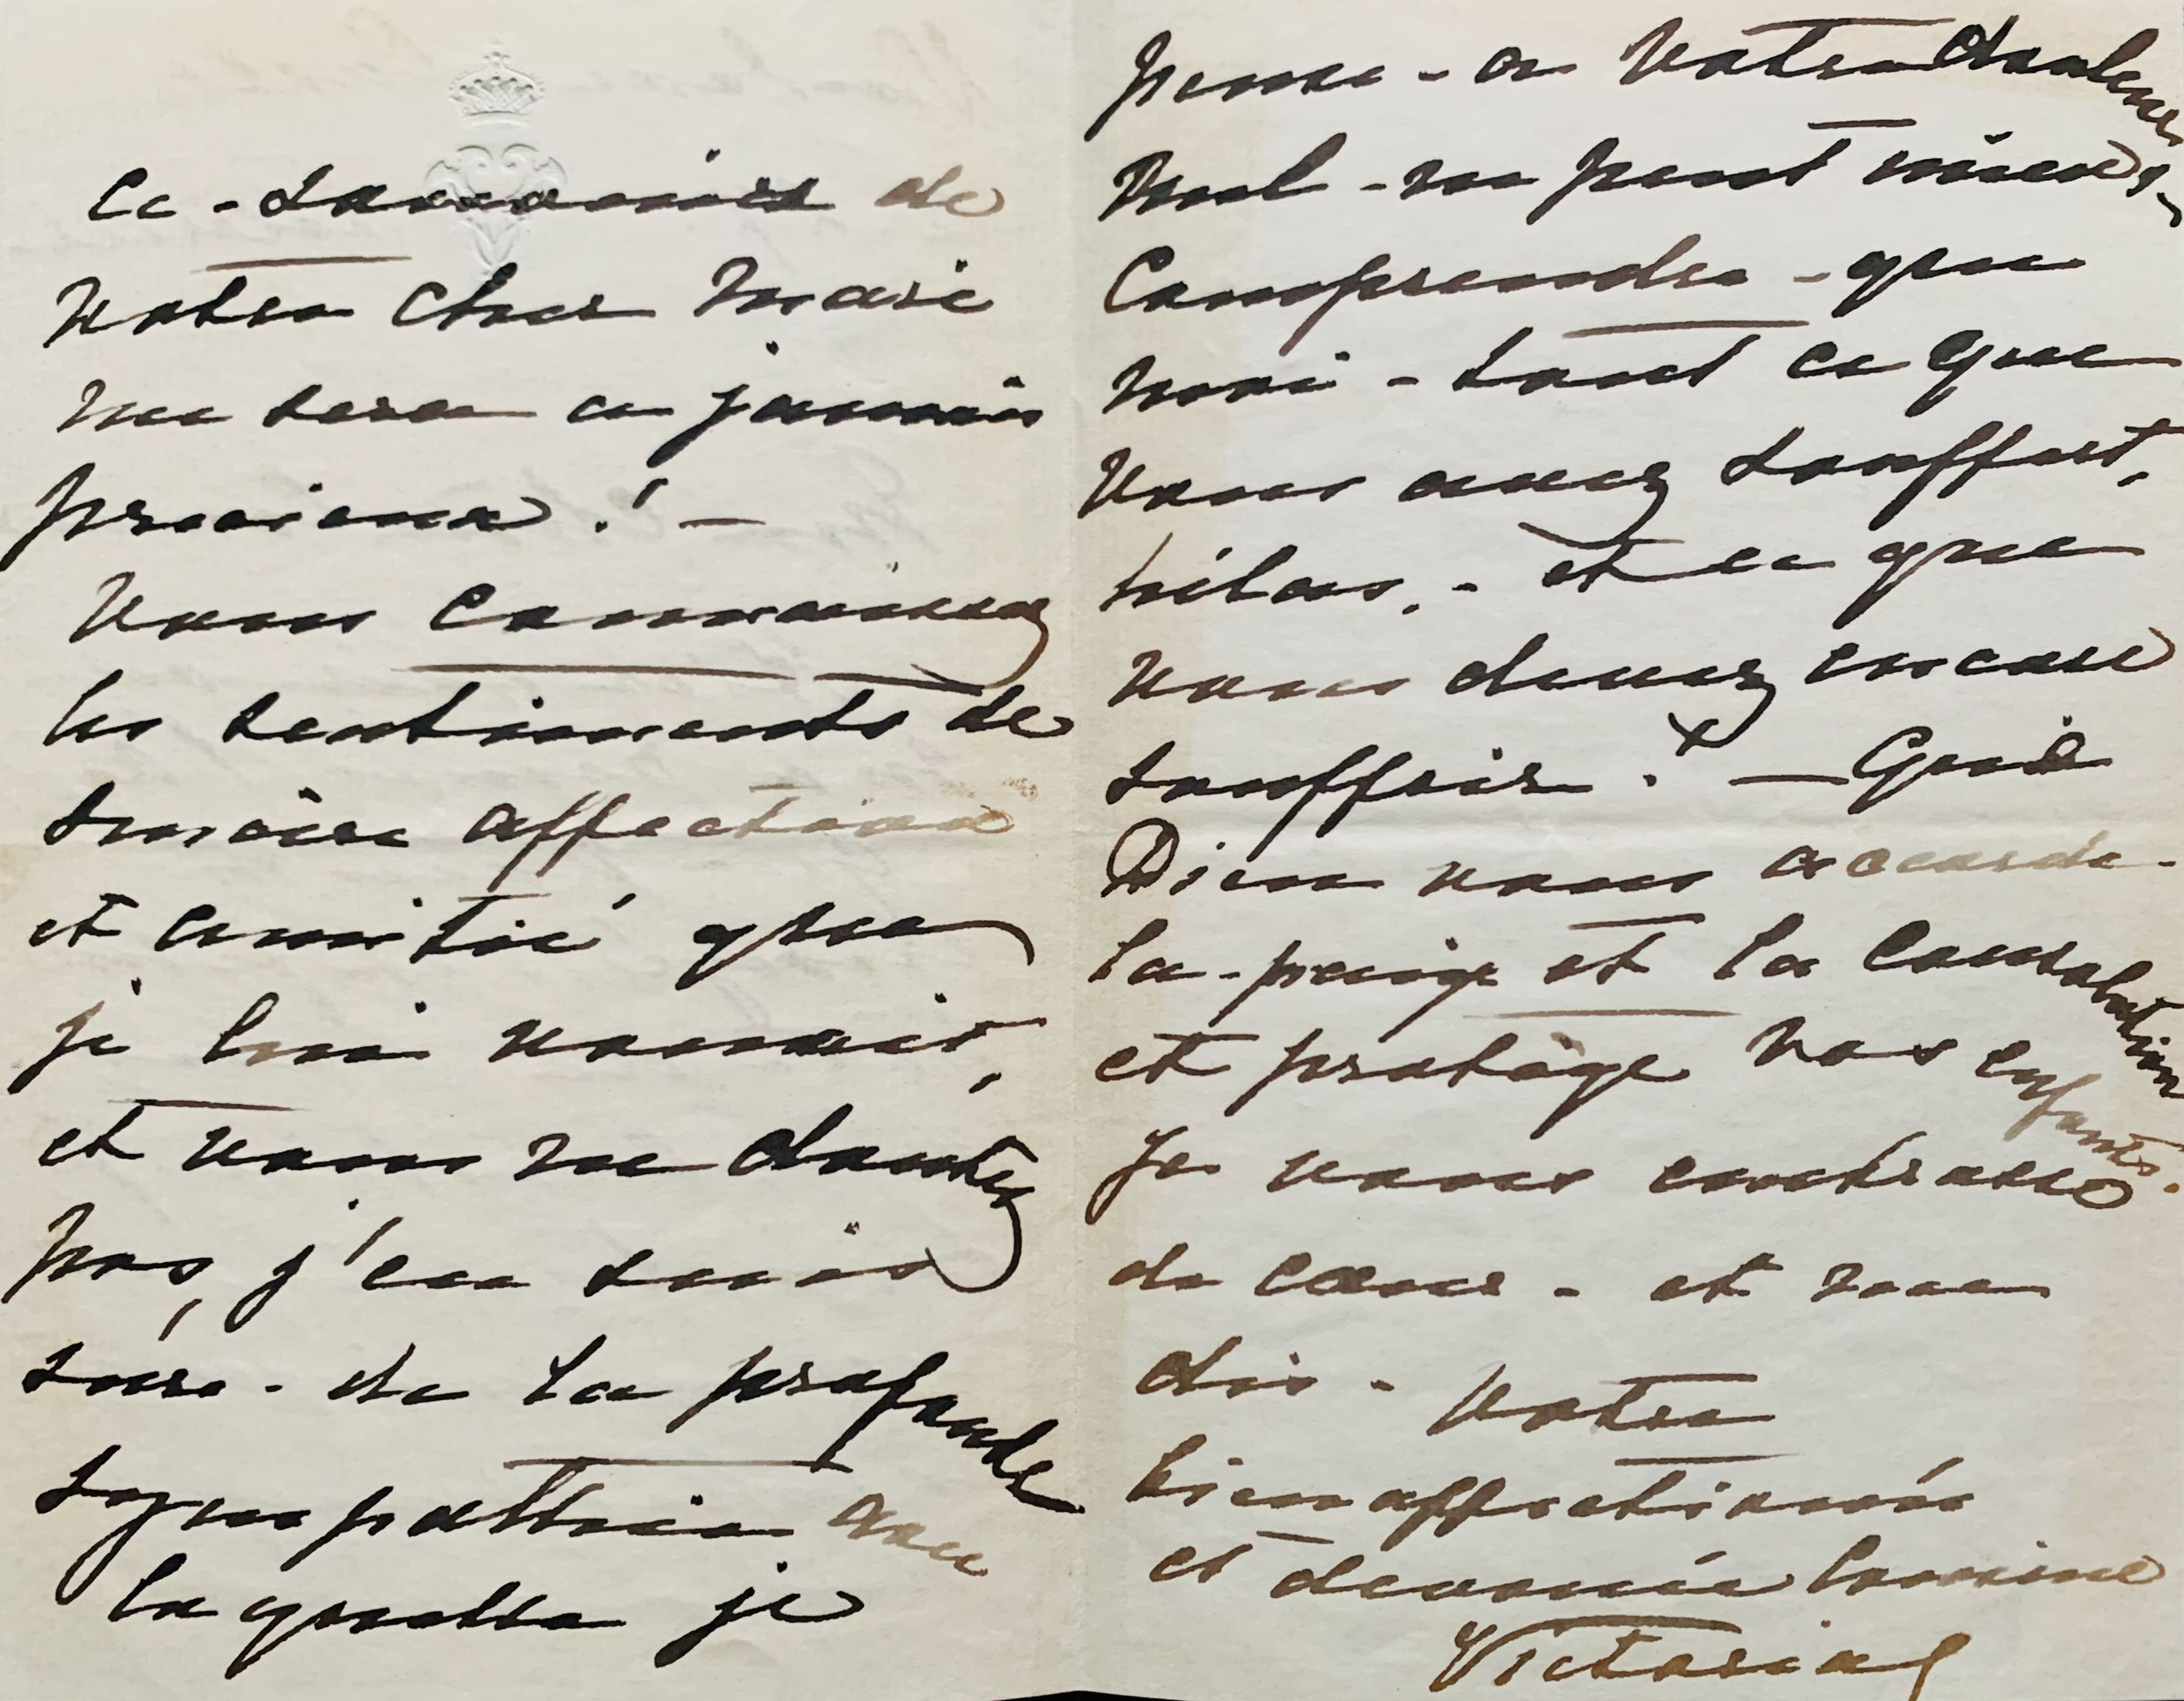 Ce - souvenir de
votre cher Mari
me sera a jamais
precieux ! —
Vous connaissez
les sentiments de
sincère affection
et amitié que
je lui vouait,
et vous ne doutez
pas, j'en suis
sûre - de la profonde
sympathie avec
laquelle je
pense - a Votre douleur
Nul - ne peut mieux -
Comprendre - que
moi - tout ce que
Vous avez souffert,
hélas, - et ce que
vous devez encore
souffrir ! — Que
Dieu vous accorde -
la - paix et la Consolation
et protège Vos enfants.
Je vous embrasse
de cœur - et me
dis - Votre
bien affectionnée
et devouée Cousine
Victoria